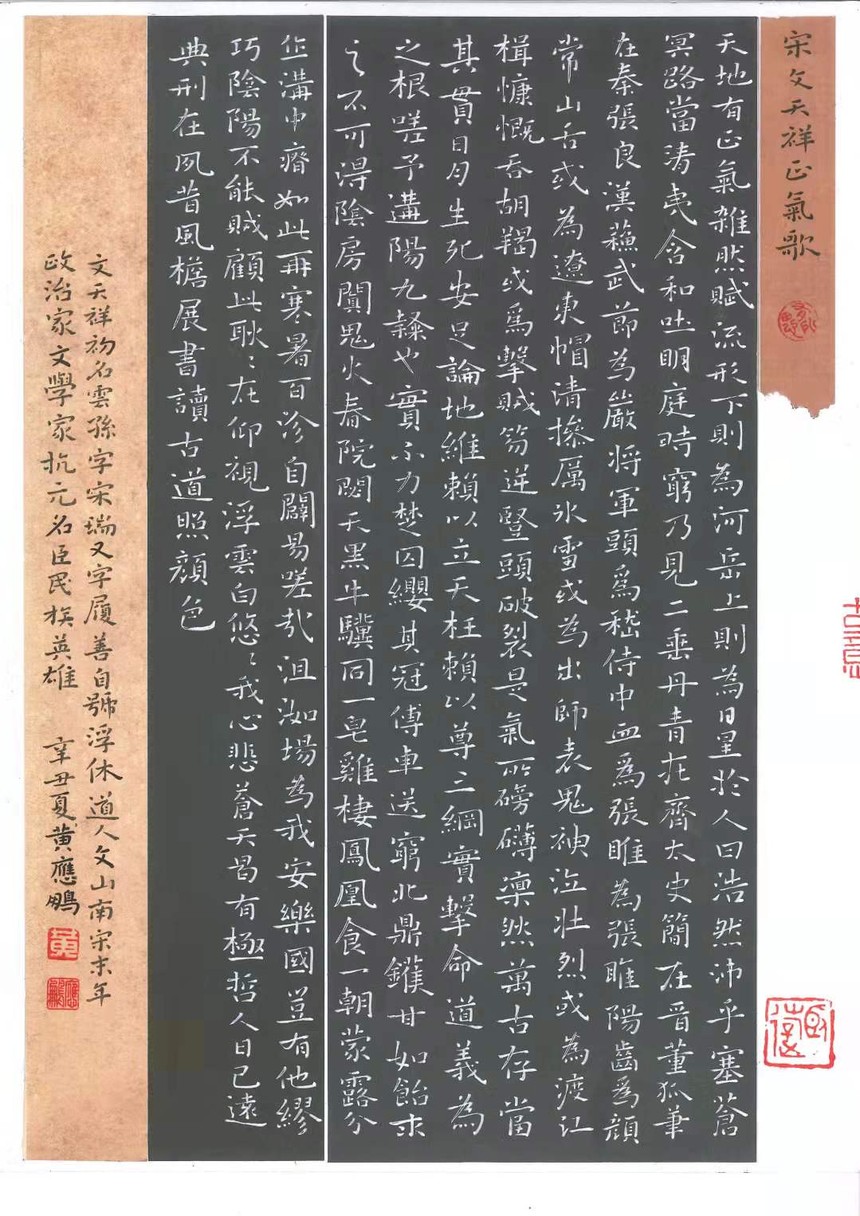 宋文天祥正氣歌
天地有正氣雜然賦流形下則為河岳上則為日星於人曰浩然沛乎塞蒼
冥路當清夷含和吐明庭時窮乃見二垂丹青在齊太史簡在晉董狐筆
在秦張良漢蘇武節為嚴將軍頭為嵇侍中血為張睢為張睢陽齒為顏
常山舌或為遼東帽清操厲冰雪或為出師表鬼神泣壯烈或為渡江
楫慷慨吞胡羯或為擊賊笏逆豎頭破裂是氣所磅礴凜然萬古存當
其貫日月生死安足論地維賴以立天柱賴以尊三綱實擊命道義為
之根嗟予遘陽九隸也實不力楚囚纓其冠傳車送窮北鼎鑊甘如飴求
之不可得陰房闐鬼火春院閟天黑牛驥同一皂雞棲鳳凰食一朝蒙露分
作溝中瘠如此再寒暑百沴自闢易嗟哉沮洳場為我安樂國豈有他繆
巧陰陽不能賊顧此耿〻在仰視浮雲白悠〻我心悲蒼天曷有極哲人日已遠
典刑在夙昔風檐展書讀古道照顏色
文天祥初名雲孫字宋瑞又字履善自號浮休道人文山南宋末年
政治家文學家抗元名臣民族英雄 辛丑夏黃應鵬
黃
應鵬
古意